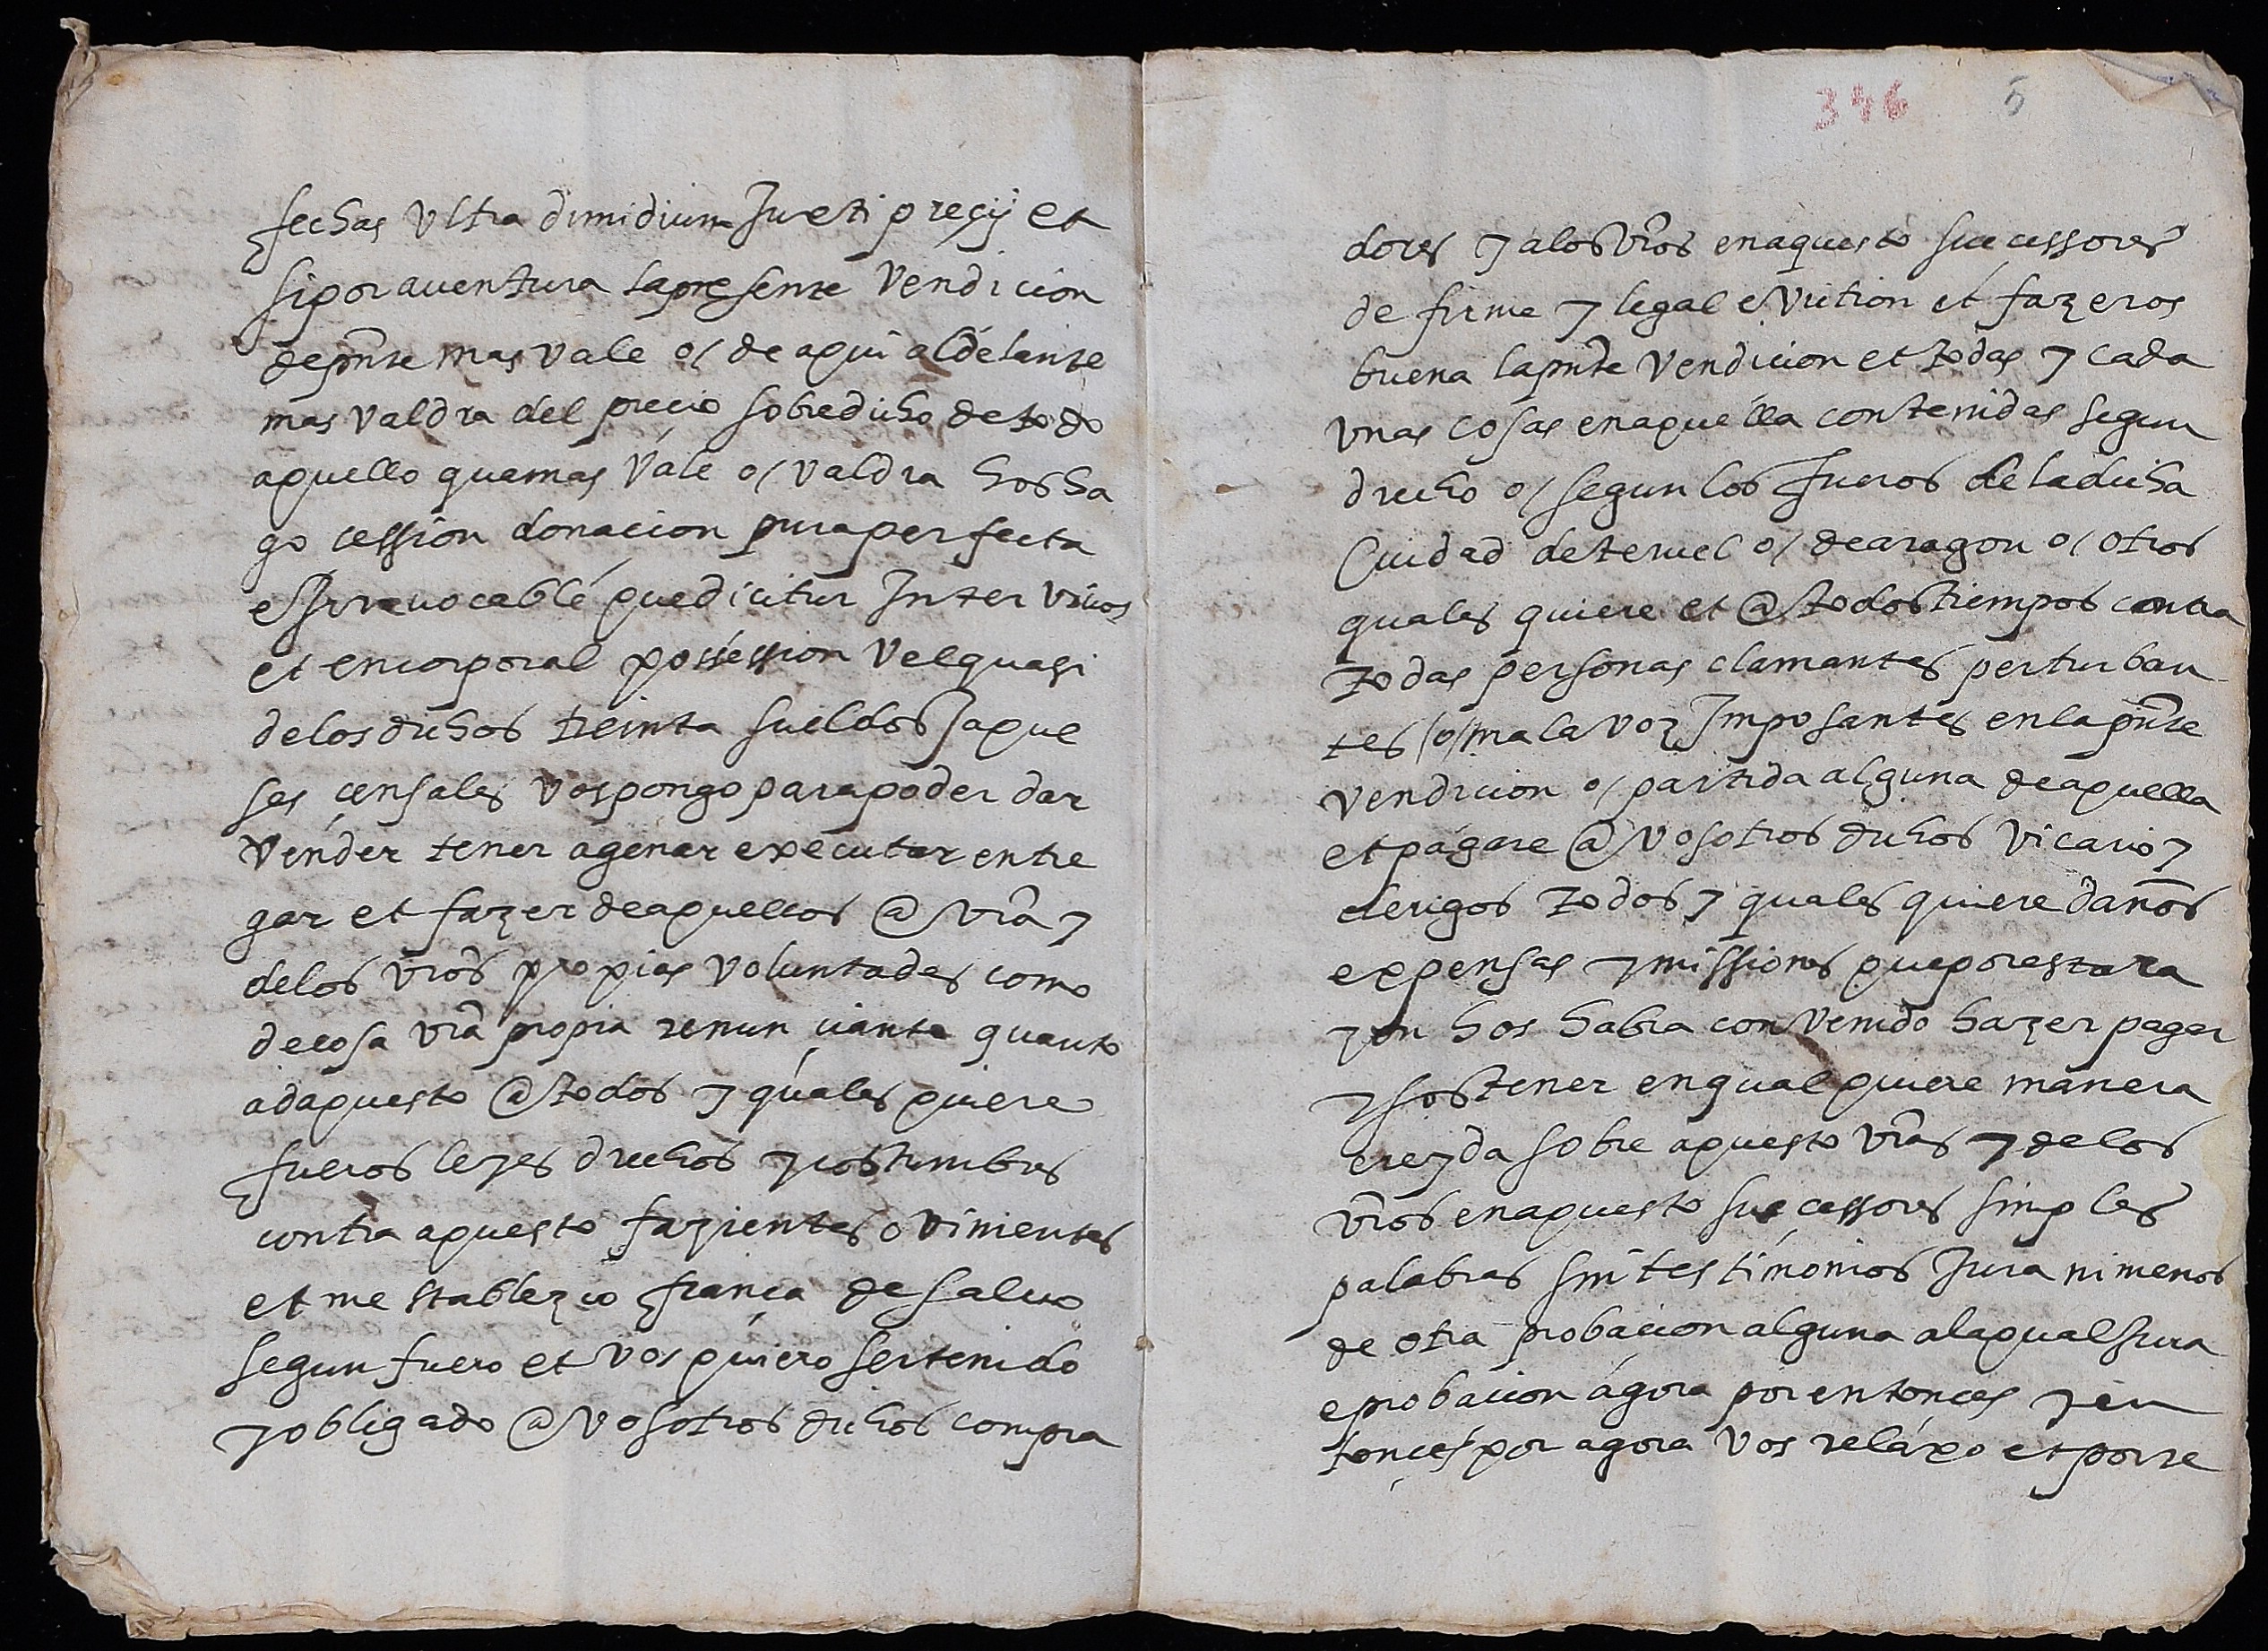 fechas vltra dimidium Justi preçij et
si por auentura la presente vendicion
de pnte mas vale o/ de aqui aldelante
mas valdra del precio sobredicho de todo
aquello que mas vale o/ valdra hos ha
go cession donacion pura perfecta
e Jrreuocable que dicitur Inter viuos
et en corporal possession vel quasi
de los dichos treinta sueldos Jaque
ses çensales vos pongo para poder dar
vender tener agenar executar entre
gar et fazer de aquellos @ vra y
de los vros propias voluntades como
de cosa vra propia renunciante quanto
ad aquesto @ todos y quales quiere
fueros leyes drechos y costumbres
contra aquesto fazientes o vinientes
et me stablezco fiança de saluo
segun fuero et vos quiero ser tenido
y obligado @ vosotros dichos compra
346 5
dores y a los vros en aquesto successores
de firme y legal eviction et fazeros
buena la pnte vendicion et todas y cada
vnas cosas en aquella contenidas segun
drecho o/ segun los fueros de la dicha
Ciudad de teruel o/ de aragon o/ otros
quales quiere et @ todos tiempos contra
todas personas clamantes perturban
tes /o/ mala voz Imposantes en la pnte
vendicion o/ partida alguna de aquella
et pagare @ vosotros dichos vicario y
clerigos todos y quales quiere daños
expensas y missiones que por esta ra
zon hos habra convenido hazer pagar
y sostener en qual quiere manera
creyda sobre aquesto vras y de los
vros en aquesto successores simples
palabras sin testimonios Jura ni menos
de otra probacion alguna a la qual Jura
e probacion agora por entonces y en
tonces por agora vos relaxo et por re